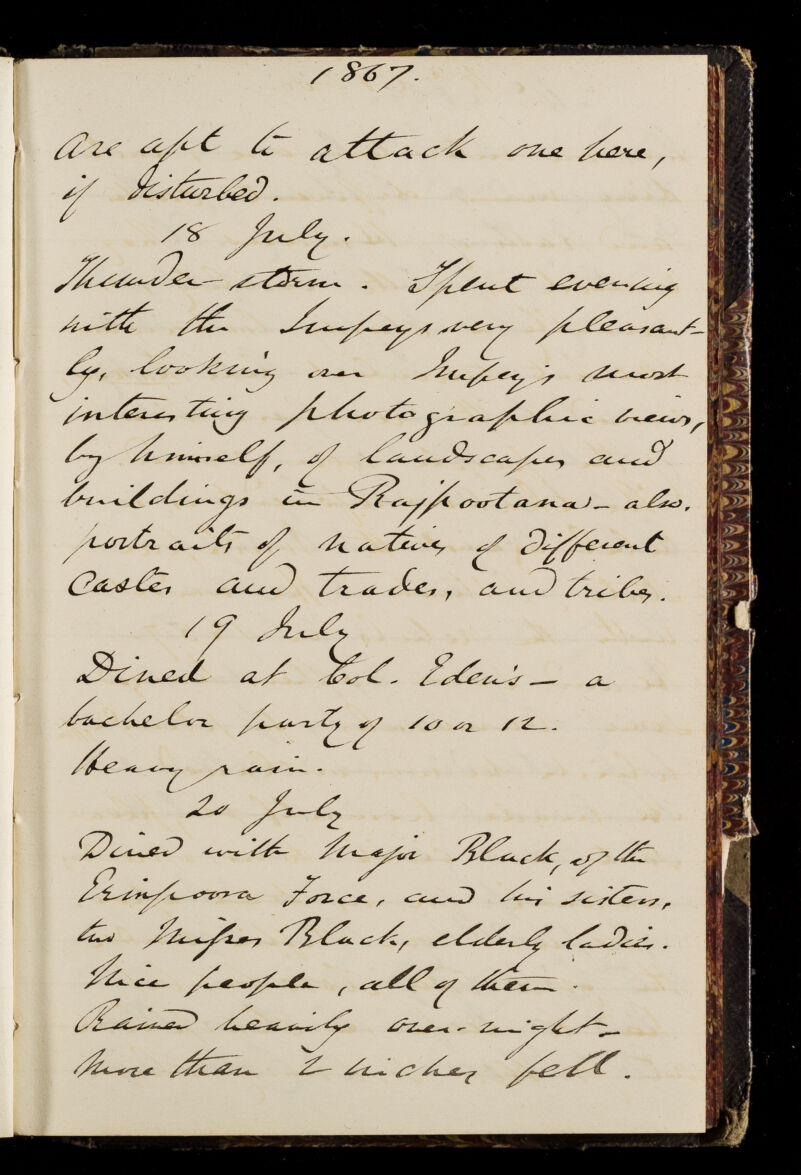 1867.
are apt to attack one here,
if disturbed.
18 July.
Thunder storm. Spent evening
with the Impeys very pleasant-
ly, looking over Impey's most
interesting photographic views,
by himself, of landscapes and
buildings in Rajpootana - also.
portraits of natives of different
castes and trades, and tribes.
19 July
Dined at Col. Eden's - a
bachelor party of 10 or 12.
Heavy rain.
20 July
Dined with Major Black, of the
Erinpoora Force, and his sisters,
two Misses Black, elderly ladies.
Nice people, all of them.
Rained heavily over-night -
more than 2 inches fell.